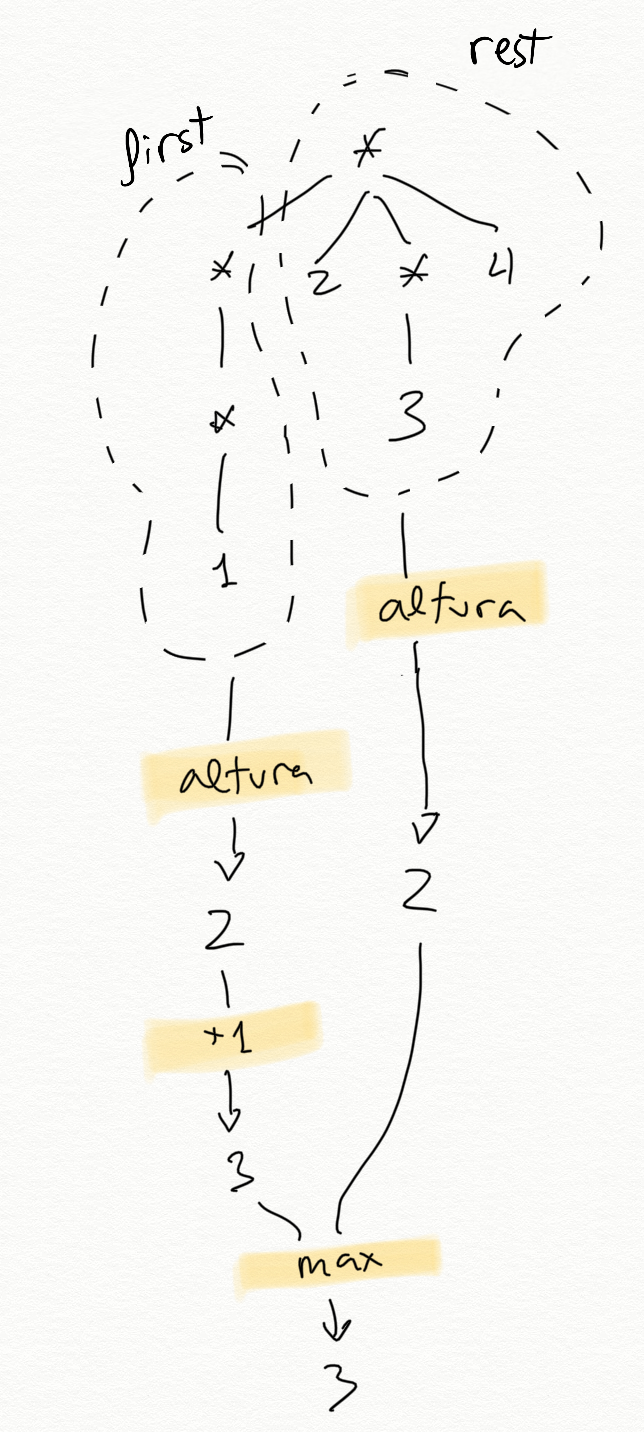 rest
first
*
* 2 * 4
* 3
1
altura
altura
2
2
+1
3
max
3